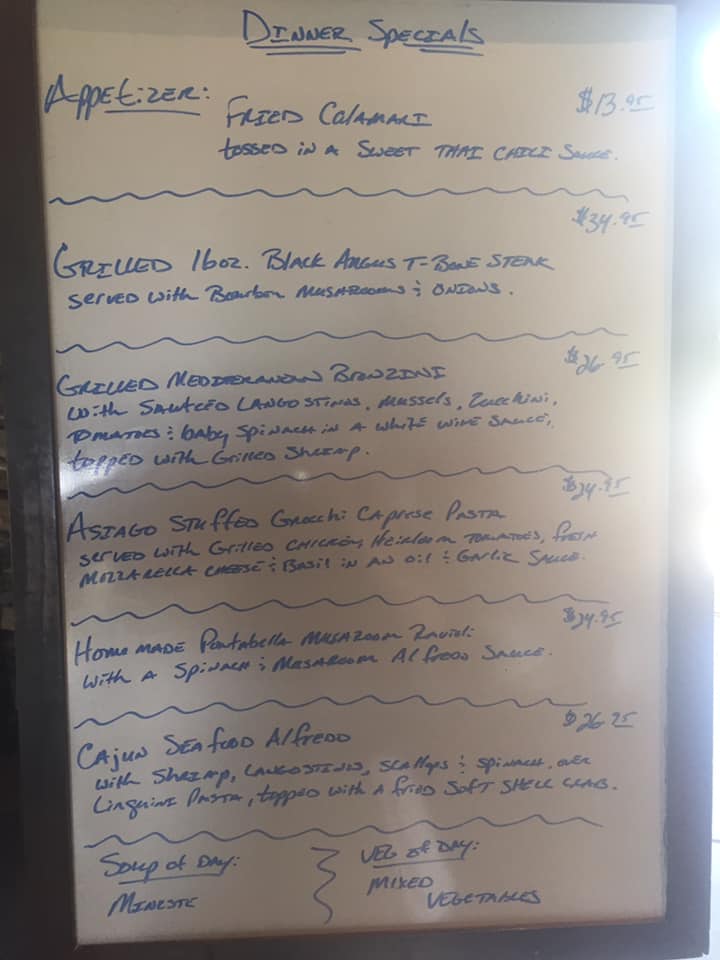 Dinner Specials
Appetizer:
$13.95
Fried Calamari
tossed in a Sweet Thai Chili Sauce.
$34.95
Grilled 16oz. Black Angus T-Bone Steak
served with Bourbon Mushrooms & Onions.
$26.95
Grilled Mediteranean Bronzini
with Sauteed Langostinos, Mussels, Zucchini,
Tomatoes & baby Spinach in a White Wine Sauce,
topped with Grilled Shrimp.
$24.95
Asiago Stuffed Gnocchi Caprese Pasta
served with Grilled Chicken, Heirloom Tomatoes, fresh
Mozzarella Cheese & Basil in an Oil & Garlic Sauce.
$24.95
Home made Portabella Mushroom Ravioli
with a Spinach & Mushroom Alfredo Sauce.
$26.95
Cajun Seafood Alfredo
with Shrimp, Langostinos, Scallops & Spinach, over
Linguini Pasta, topped with a fried Soft Shell Crab.
Soup of Day:
Mineste
Veg of Day:
Mixed
Vegetables